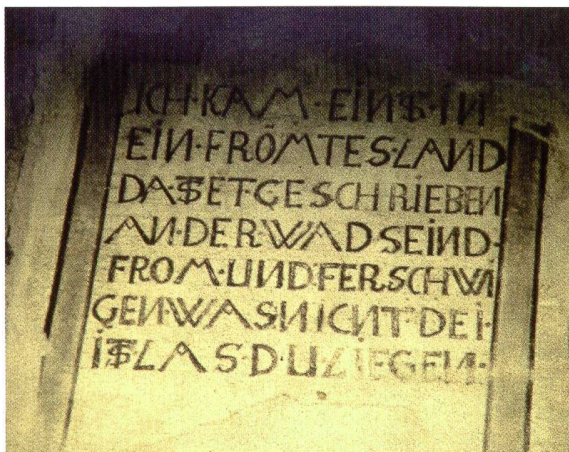 ICH·KAM·EINST·IN
EIN·FRÖMTES·LAND
DASTET·GESCHRIEBEN
AN·DER·WAD SEIND·
FROM·UND FERSCHWI
GEN·WAS NICNT·DEI·
IST LAS·D·U LIEGEN·